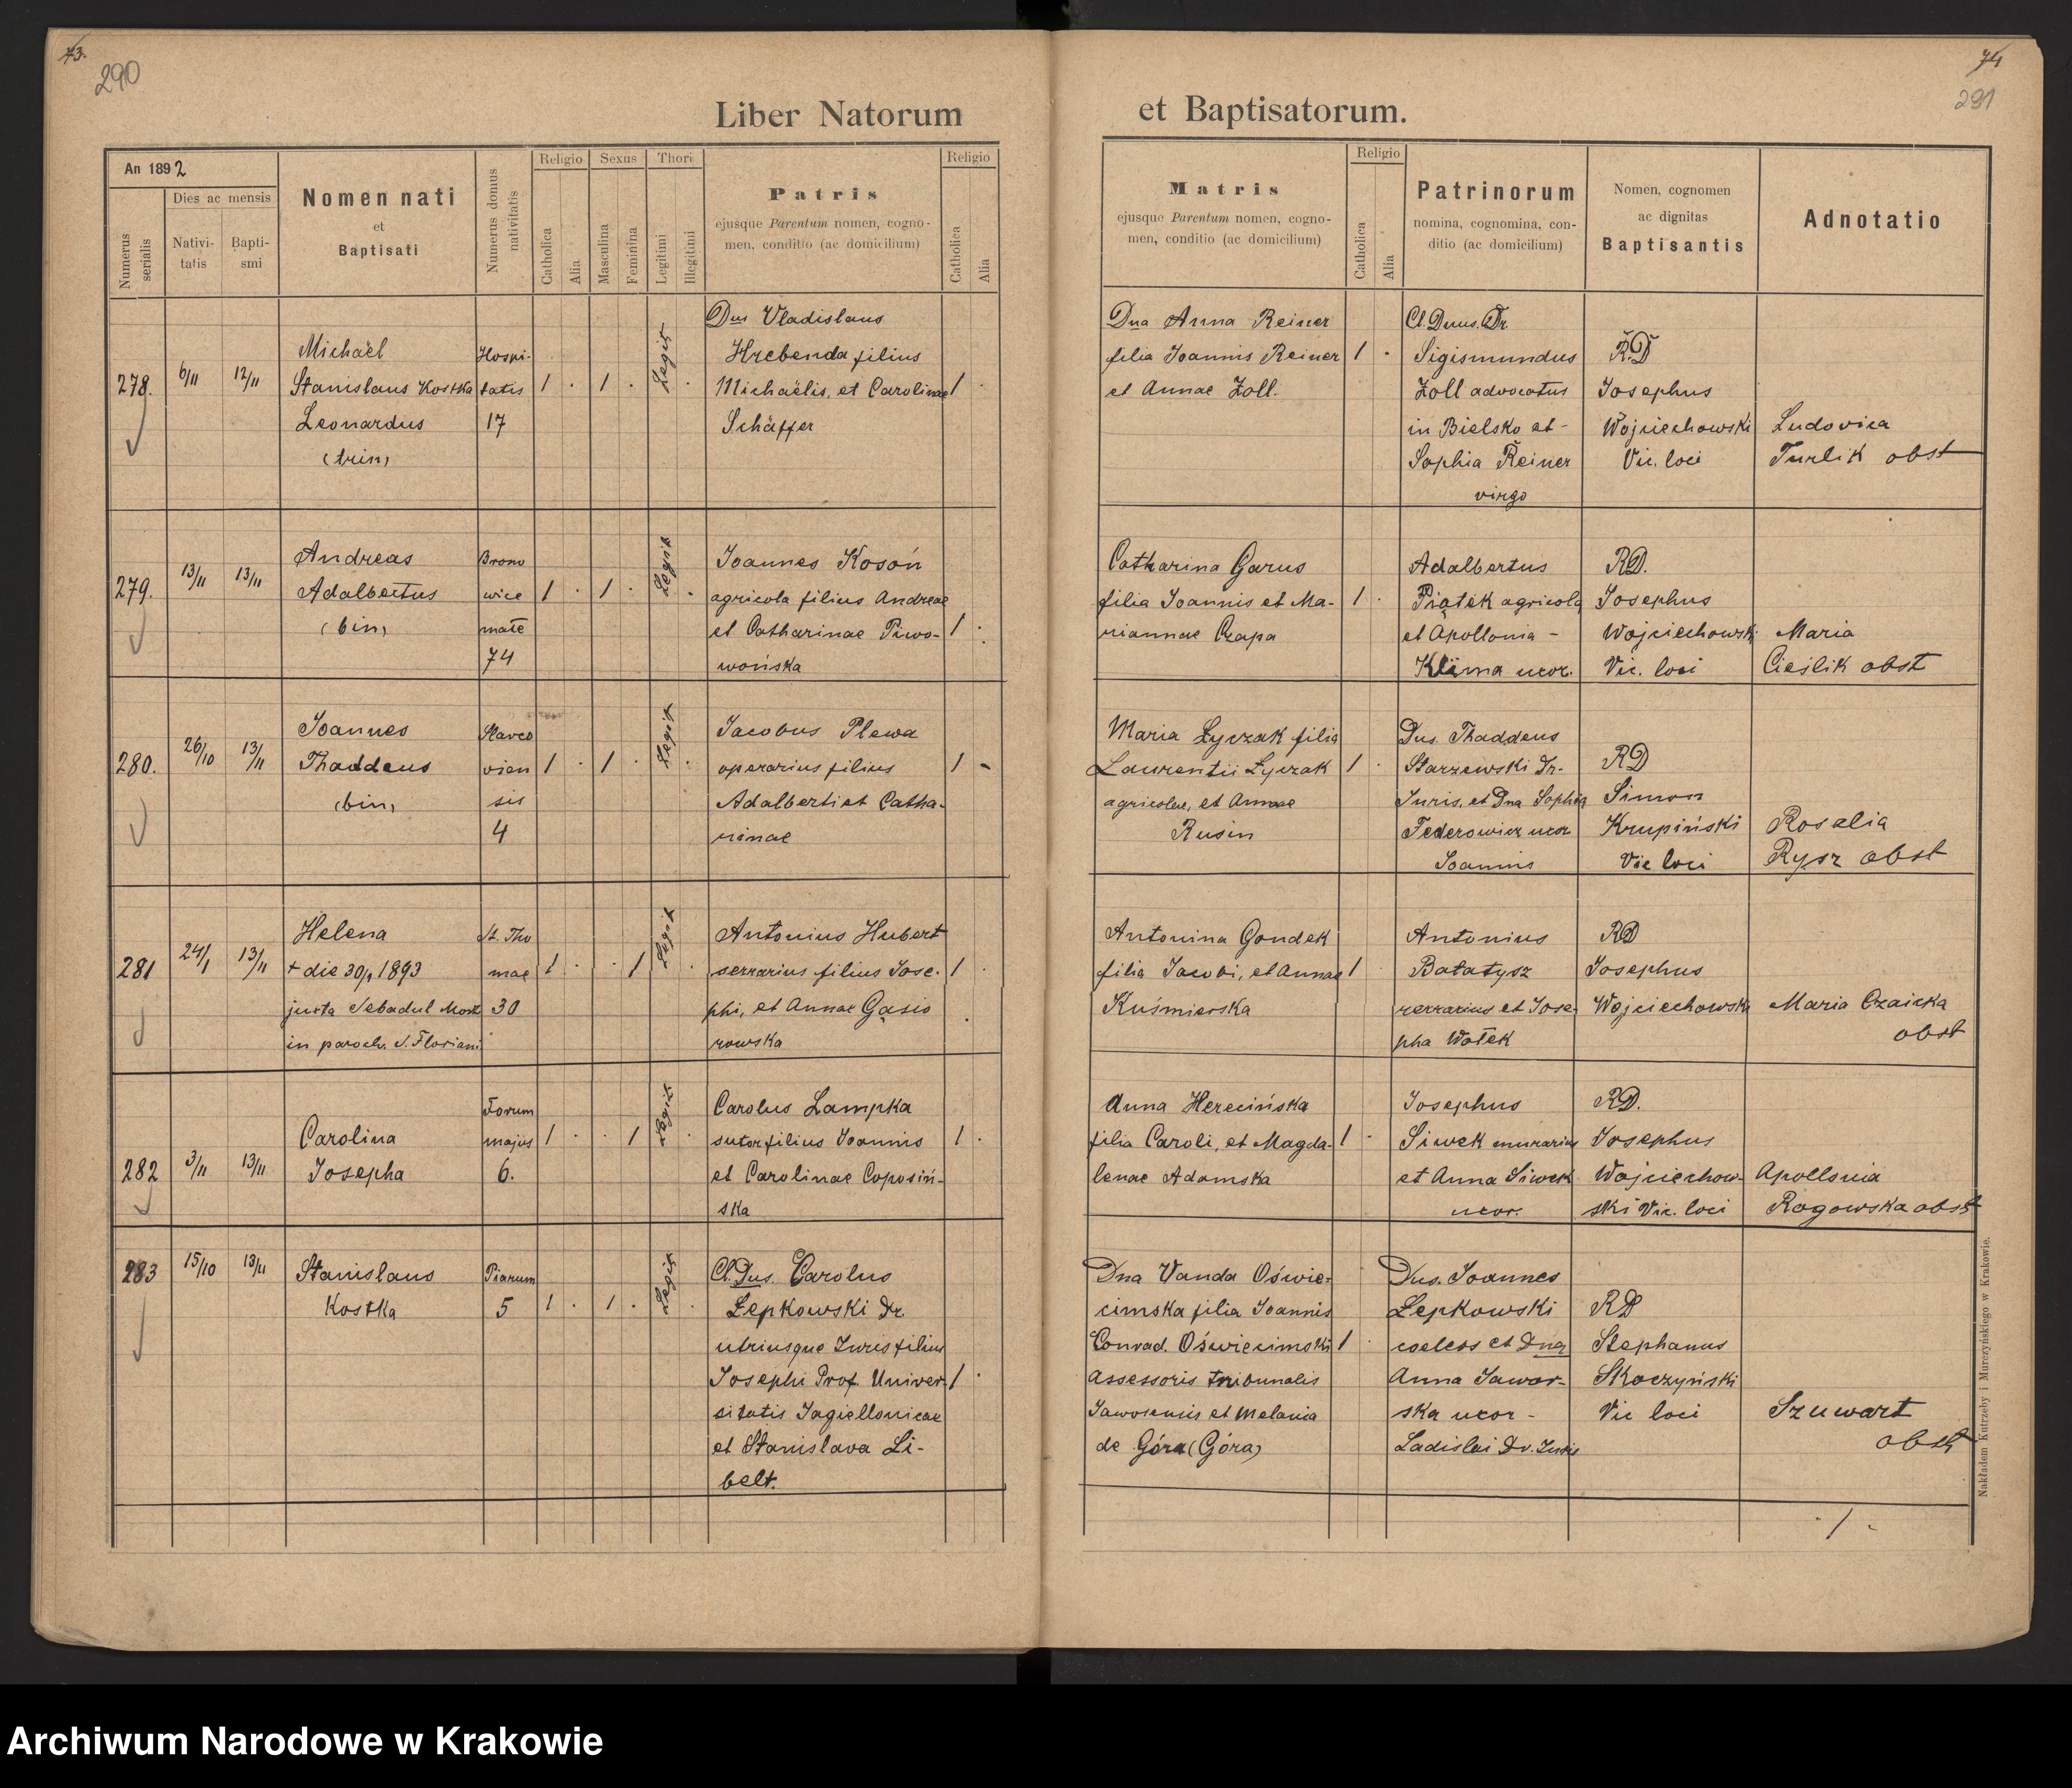 73.
290
Liber Natorum
An 1892
Numerus serialis
Dies ac mensis
Nativi-
tatis
Bapti-
smi
Nomen nati
et
Baptisati
Numerus domus
nativitatis
Religio
Catholica
Alia
Sexus
Masculina
Feminina
Thori
Legitimi
Illegitimi
Patris
ejusque Parentum nomen, cogno-
men, conditio (ac domicilium)
Religio
Catholica
Alia
278.
6/11
12/11
Michaël
Stanislaus Kostka
Leonardus
(trin)
Hospi-
talis
17
1 . 1 .
Legit
Dus Vladislaus
Hrebenda filius
Michaëlis, et Carolinae
Schäffer
1
279.
13/11
13/11
Andreas
Adalbertus
(bin)
Brono
wice
małe
74
1 . 1 .
Legit
Joannes Kosoń
agricola filius Andreae
et Catharinae Piwo-
wońska
1 .
280.
26/10
13/11
Joannes
Thaddeus
(bin)
Slavco
vien
sis
4
1 . 1 .
Legit
Jacobus Plewa
operarius filius
Adalberti et Catha-
rinae
1 -
281
24/1
13/11
Helena
+ die 30/1 1893
in paroch. S. Floriani
St. Tho
mae
30
1 . . 1
Legit
Antonius Hubert
serrarius filius Jose-
phi, et Annae Gąsio
rowska
1 .
282
3/11
13/11
Carolina
Josepha
Forum
majus
6.
1 . . 1
Legit
Carolus Lampka
sutor filius Joannis
et Carolinae Coposiń-
ska
1 .
283
15/10
13/11
Stanislaus
Kostka
Piarum
5
1 . 1 .
Legit
Cl. Dus. Carolus
Łepkowski Dr
utriusque Juris filius
Josephi Prof. Univer-
sitatis Jagiellonicae
et Stanislava Li-
belt.
1 .
74
291
et Baptisatorum.
Matris
ejusque Parentum nomen, cogno-
men, conditio (ac domicilium)
Religio
Catholica
Alia
Patrinorum
nomina, cognomina, con-
ditio (ac domicilium)
Nomen, cognomen
ac dignitas
Baptisantis
Adnotatio
Dna Anna Reiner
filia Joannis Reiner
et Annae Zoll.
1 .
Cl. Dnus. Dr.
Sigismundus
Zoll advocatus
in Bielsko et -
Sophia Reiner
virgo
R.D
Josephus
Wojciechowski
Vic. loci
Ludovica
Turlik obst
Catharina Garus
filia Joannis et Ma-
riannae Czapa
1 .
Adalbertus
Piątek agricola
et Apollonia -
Klima uxor.
RD.
Josephus
Wojciechowski
Vic. loci
Maria
Cieślik obst
Maria Łyczak filia
Laurentii Łyczak
agricolae, et Annae
Rusin
1 .
Dus. Thaddeus
Starzewski Dr.
Juris, et Dna Sophia
Federowicz uxor
Joannis
RD
Simon
Krupiński
Vic loci
Rosalia
Rysz obst
Antonina Gondek
filia Jacobi, et Annae
Kuśmierska
1
Antonius
Batatysz
serrarius et Jose-
pha Wołek
RD
Josephus
Wojciechowski
Maria Czaicka
obst
Anna Herecińska
filia Caroli, et Magda-
lenae Adamska
1 .
Josephus
Siwek murarius
et Anna Siwek
uxor.
RD.
Josephus
Wojciechow-
ski Vic. loci
Apollonia
Rogowska obst
Dna Vanda Oświe-
cimska filia Joannis
Conrad. Oświecimski
Assessoris tribunalis
et Melania
de Góra (Góra)
1 .
Dus. Joannes
Łepkowski
coelebs et Dna
Anna Jawor-
ska uxor -
Ladislai Dr. Juris
RD
Stephanus
Skoczyński
Vic loci
Szuwart
obst
Nakładem Kutrzeby i Murczyńskiego w Krakowie.
Archiwum Narodowe w Krakowie